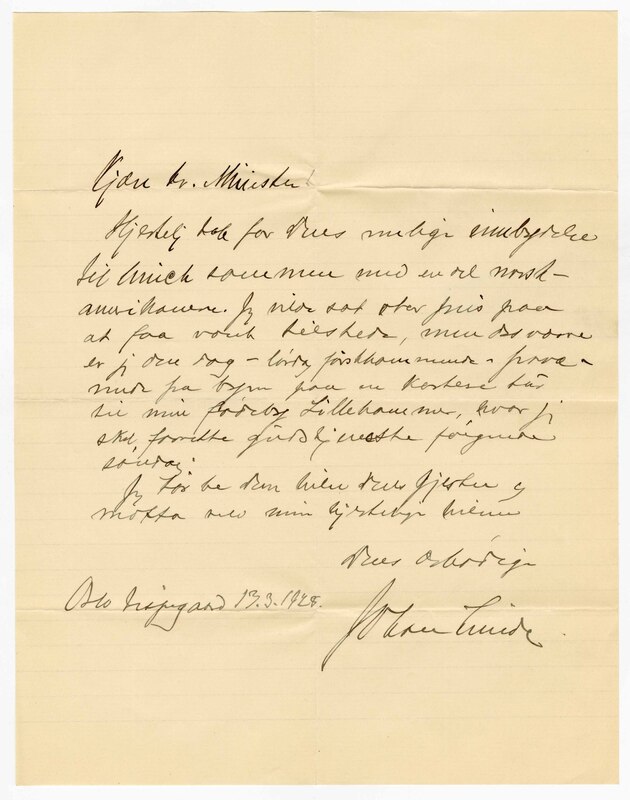 Kjære hr. Minister!
Hjertelig tak for Deres venlige innbydelse
til lunch sammen med en del norsk-
amerikanere. Jeg vilde sat stor pris paa
at faa været tilstede, men desværre
er jeg den dag – lørdag førstkommende – fravæ-
rende fra byen paa en kortere tur
til min fødeby Lillehammer, hvor jeg
skal forrette gudstjeneste følgende
søndag.
Jeg tør be Dem hilse Deres gjester og
motta selv min hjertelige hilsen
Deres ærbødige
Oslo bispegaard 13.3.1928.
Johan Lunde.